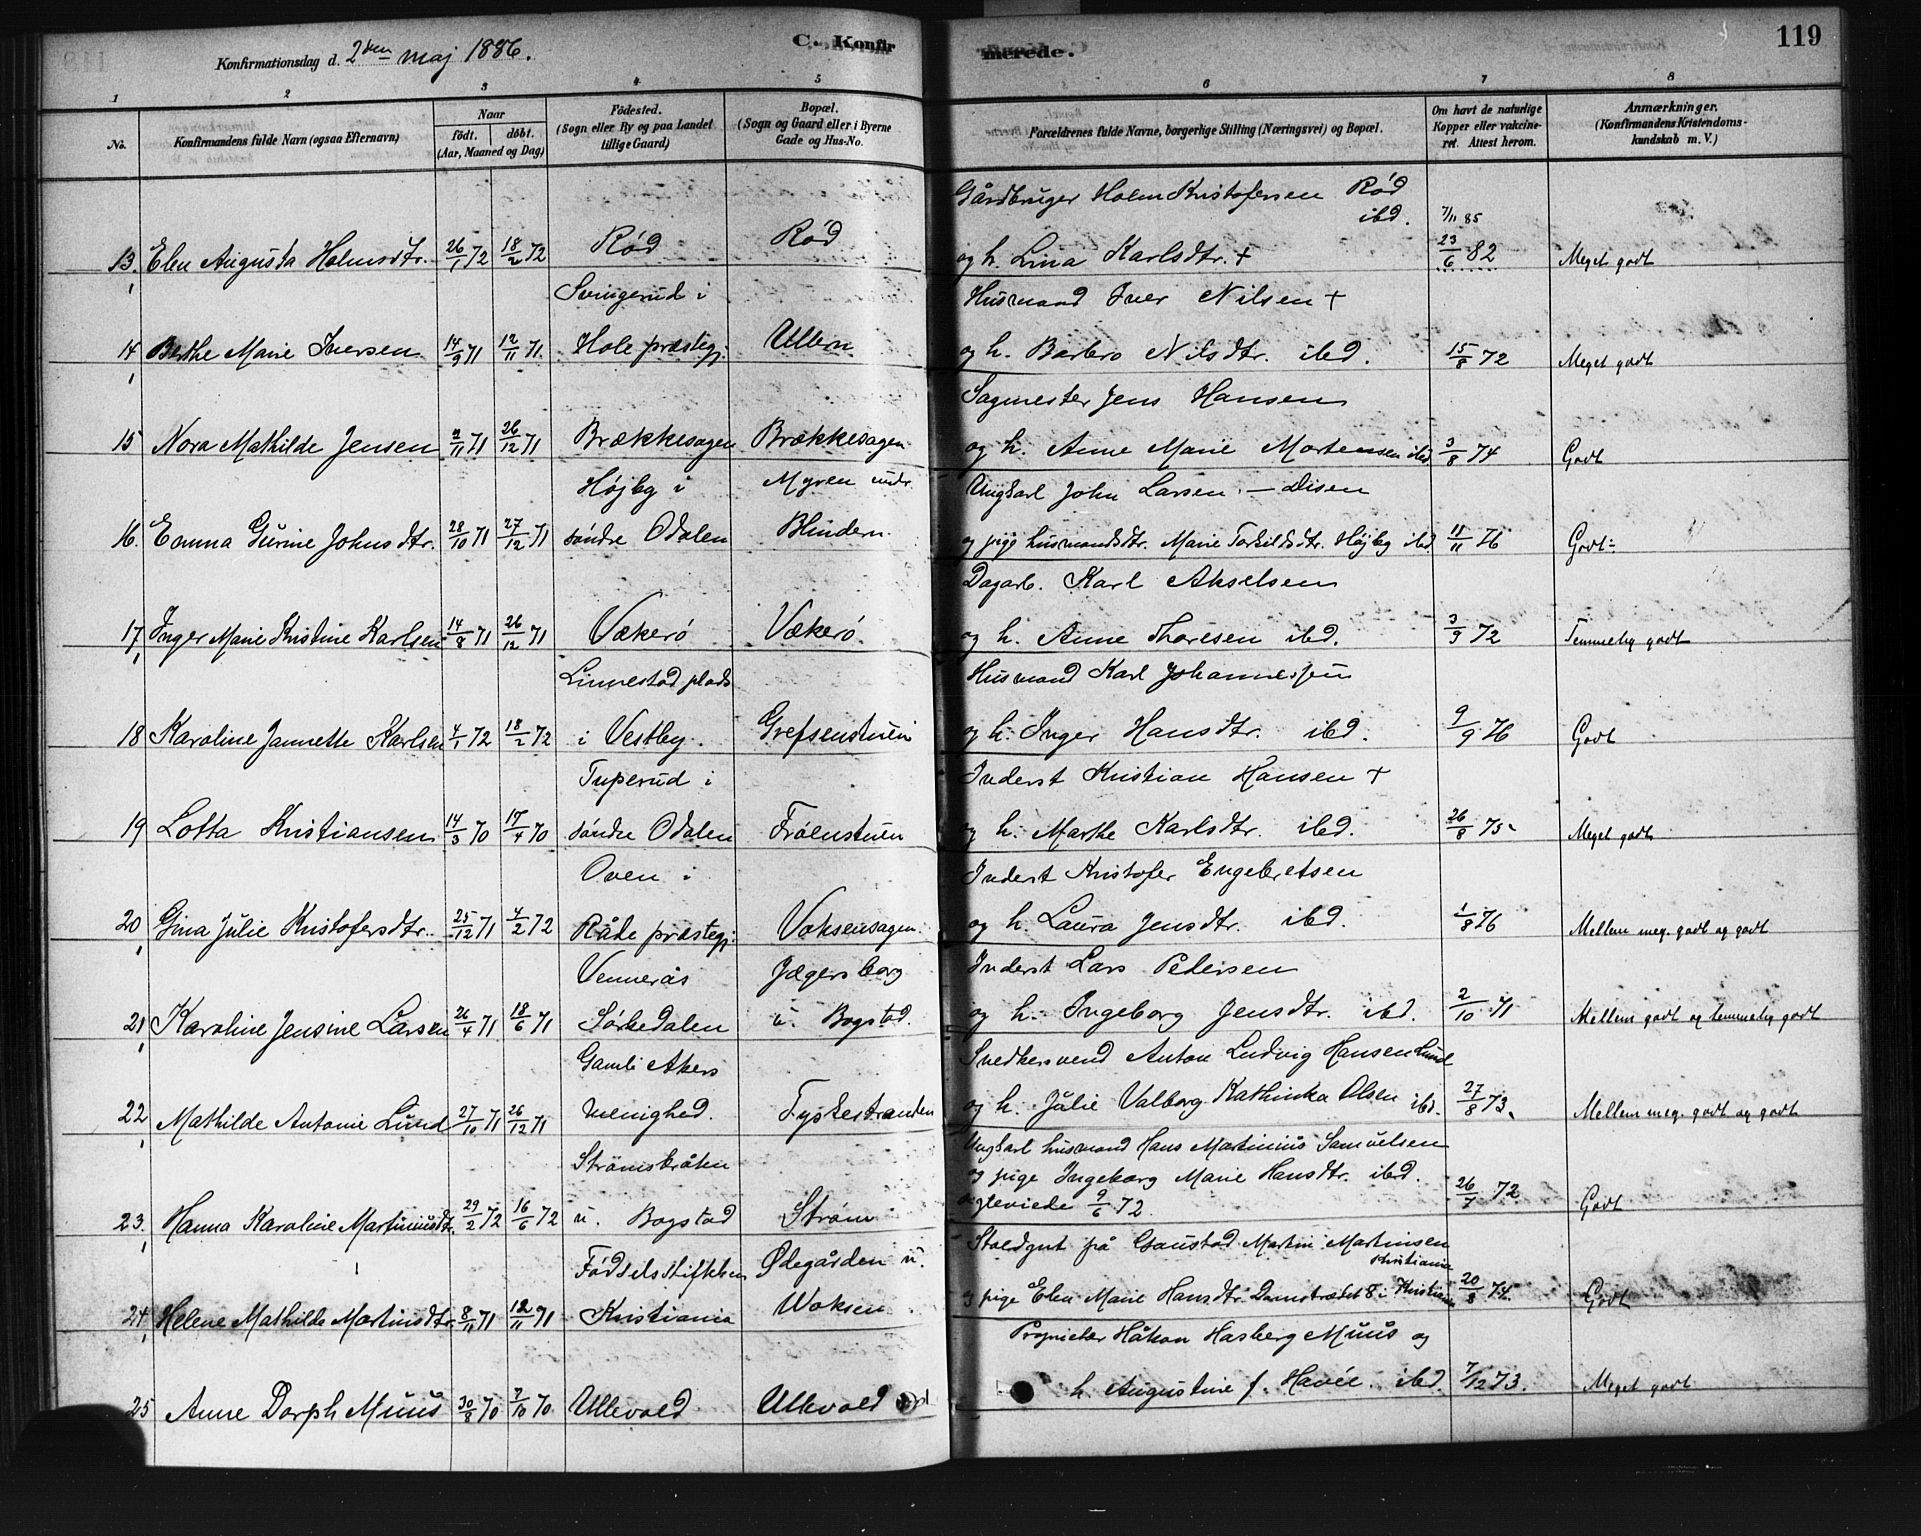 Konfirmationsdag d. 2den maj 1886.
C. Konfirmerede.
119
1 2 3 4 5 6 7 8
No.
Konfirmandens fulde Navn (ogsaa Efternavn)
Naar
födt. döbt.
(Aar, Maaned og Dag)
Födested.
(Sogn eller By og paa Landet
tillige Gaard)
Bopæl.
(Sogn og Gaard eller i Byerne
Gade og Hus-No.
Forældrenes fulde Navne, borgerlige Stilling (Næringsvei) og Bopæl.
Om havt de naturlige
Kopper eller vakcine-
ret. Attest herom.
Anmærkninger.
(Konfirmandens Kristendoms-
kundskab m. V.)
Gårdbruger Holm Kristofersen Rød
ibd. 7/11 85
13. Elen Augusta Holmsdtr. 26/1 72 18/2 72 Rød Rød og h. Lina Karlsdtr. + 23/6 82 Meget godt
Svingerud i Husmand Iver Nilsen +
14 Berthe Marie Iversen 14/9 71 12/11 71. Hole præstegj. Ullern og h. Barbro Nilsdtr. ibd. 15/8 72 Meget godt
Sagmester Jens Hansen
15 Nora Mathilde Jensen 2/11 71 26/12 71 Brækkesagen Brækkesagen og h. Anne Marie Mortensen ibd. 3/8 74 Godt
Højby i Myren undr. Ungkarl John Larsen. — Disen
16. Emma Gurine Johnsdtr. 28/10 71 27/12 71 søndre Odalen Blindern og pige husmandsdtr. Marie Torkildsdtr. Højby ibd 11/11 76 Godt-
Dagarb. Karl Akselsen
17 Inger Marie Kristine Karlsen 14/8 71 26/12 71 Vækerø Vækerø. og h. Anne Thoresen ibd. 3/9 72 Temmelig godt
Linnestad plads Husmand Karl Johannessen
18 Karoline Jannette Karlsen 4/1 72 18/2 72 i Vestby. Grefsenstuen og h. Inger Hansdtr. ibd. 9/9 76 Godt
Tuperud i Inderst Kristian Hansen +
19 Lotta Kristiansen 14/3 70 17/4 70 søndre Odalen Frøenstuen og h. Marthe Karlsdtr. ibd. 26/8 75. Meget godt
Oven i Inderst Kristofer Engebretsen
20 Gina Julie Kristofersdtr. 25/12 71 4/2 72 Råde præstegj. Voksensagen og h. Laura Jensdtr. ibd. 1/8 76 Mellem meg. godt og godt
Vennerås Jægersborg Inderst Lars Petersen
21 Karoline Jensine Larsen 26/4 71 18/6 71 Sørkedalen u. Bogstad. og h. Ingeborg Jensdtr. ibd. 2/10 71 Mellem godt og temmelig godt
Gamle Akers Snedkersvend Anton Ludvig Hansen Lund
22 Mathilde Antonie Lund 27/10 71 26/12 71 menighed. Tyskestranden og h. Julie Valborg Kathinka Olsen ibd. 27/8 73. Mellem meg. godt og godt
Strømsbråten Ungkarl husmand Hans Martinius Samuelsen
og pige Ingeborg Marie Hansdtr. ibd.
23. Hanna Karoline Martiniusdtr. 29/2 72 16/6 72 u. Bogstad Strøm ægteviede 9/6 72. 26/7 72 Godt
Fødselsstiftelsen Ødegården u. Staldgut på Gaustad Martin Martinsen
Kristiania
24. Helene Mathilde Martinsdtr. 8/11 71 12/11 71 Kristiania Voksen og pige Elen Marie Hansdtr. Damstrædet 8 i Kristiania 20/8 74 Godt
Proprietær Håkon Hasberg Muus og
25 Anne Dorph Muus 30/8 70 2/10 70 Ullevold Ullevold h. Augustine f. Havér. ibd. 7/12 73. Meget godt